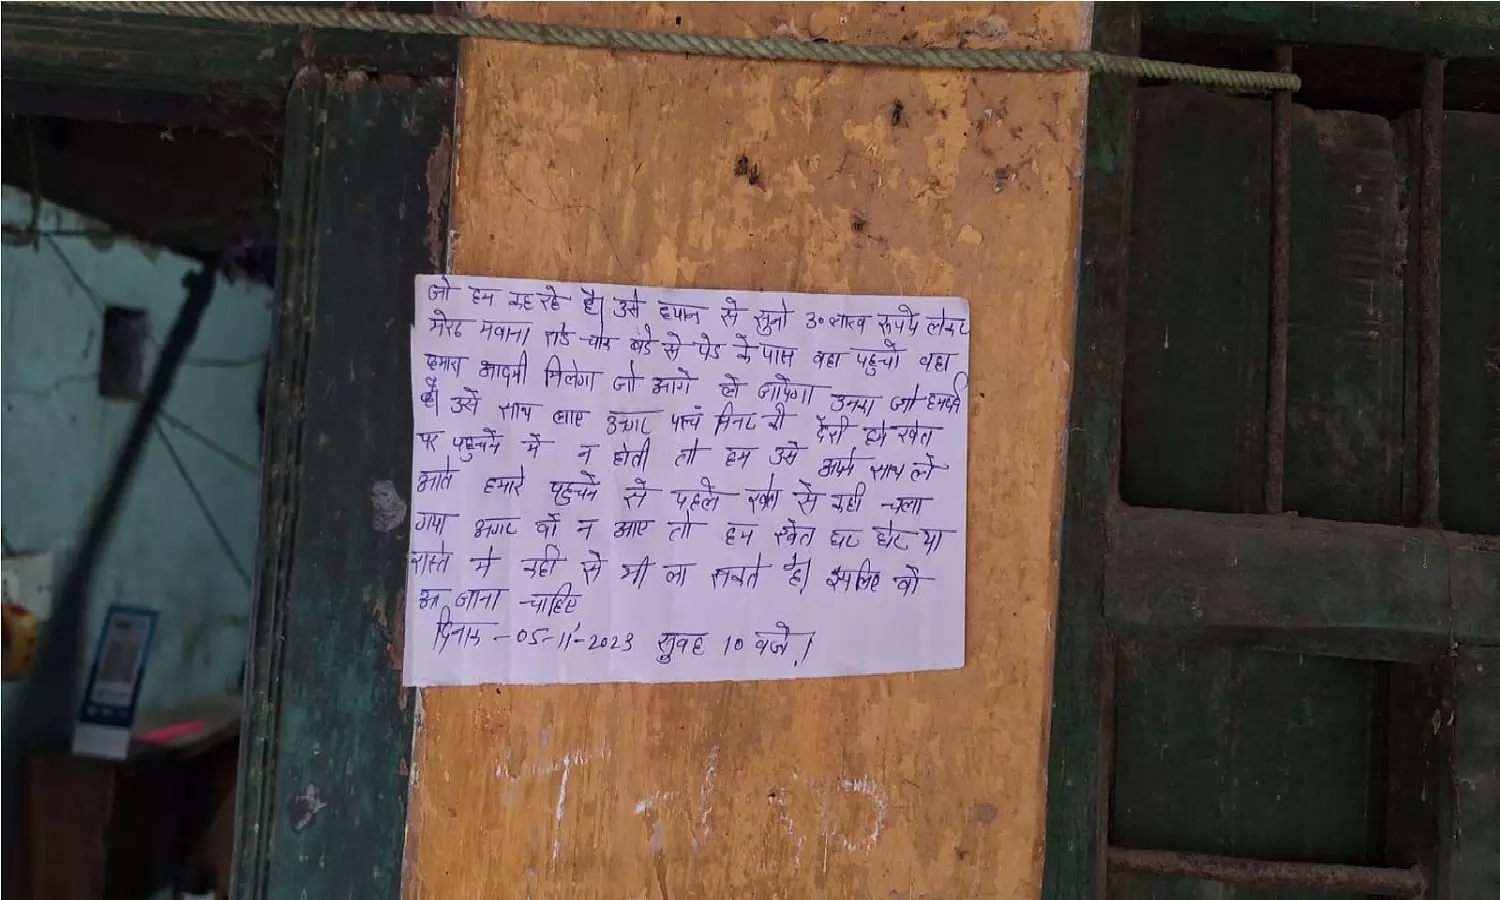 जो हम कह रहे है। उसे ध्यान से सुनो 30 लाख रूपये लेकर
मेरठ मवाना रोड बडे से पेड के पास वहा पहुचो वहा
हमारा आदमी मिलेगा जो आगे ले जायेगा उनका जो
है। उसे साथ लाए अगर पाचं मिनट की देरी हमे खेत
पर पहुचने मे न होती तो हम उसे अपने साथ ले
आते हमारे पहुचने से पहले खेत से कही चला
गया अगर वो न आए तो हम खेत घर घेर या
रास्ते मे कही से भी ला सकते है। इसलिए वो
आ जाना चाहिए
दिनाक - 05-11-2023 सुवह 10 वजे।